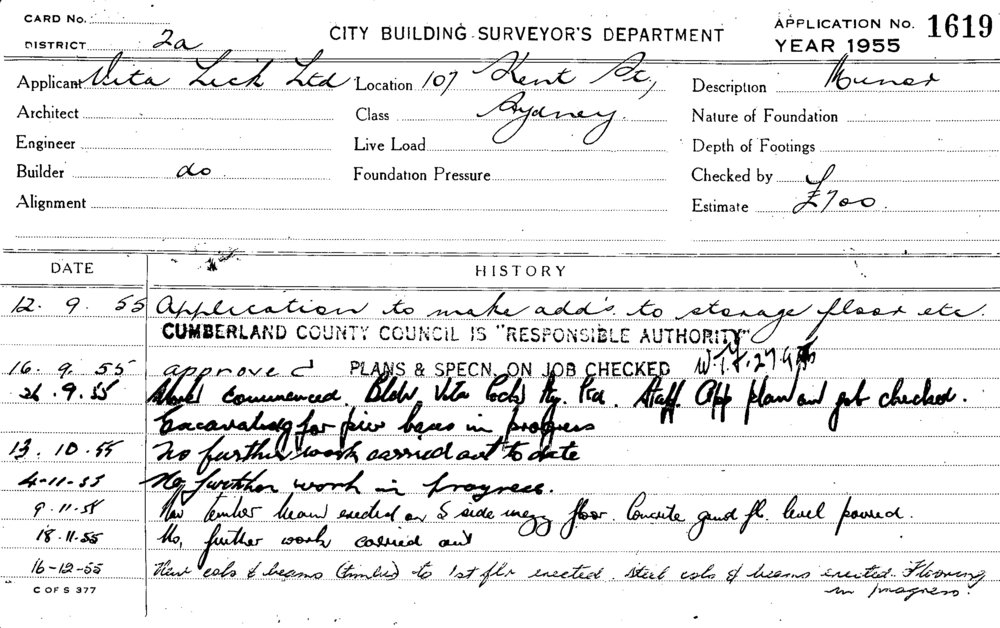 CARD No.
DISTRICT 2a
CITY BUILDING SURVEYOR'S DEPARTMENT
APPLICATION No. 1619
YEAR 1955
Applicant Vita Lick Ltd Location 107 Kent St, Description Minor
Architect Class Sydney. Nature of Foundation
Engineer Live Load Depth of Footings
Builder do Foundation Pressure Checked by
Alignment Estimate £700.
DATE HISTORY
12. 9. 55 Application to make add's. to storage floor etc.
CUMBERLAND COUNTY COUNCIL IS "RESPONSIBLE AUTHORITY"
16. 9. 55 approved PLANS & SPECN. ON JOB CHECKED
26. 9. 55 Work commenced. Bldr. Vita Pty. Ltd. Staff. App plan on job checked.
Excavating for pier bases in progress
13. 10. 55 No further work carried out to date
4-11-55 No further work in progress.
9. 11. 55 New timber beam erected on S side mezz floor. Concrete gund fl. level poured.
18. 11. 55 No, further work carried out
16-12-55 New cols & beams (timber) to 1st flr erected. Steel cols & beams erected. Flooring
in progress.
C OF S 377